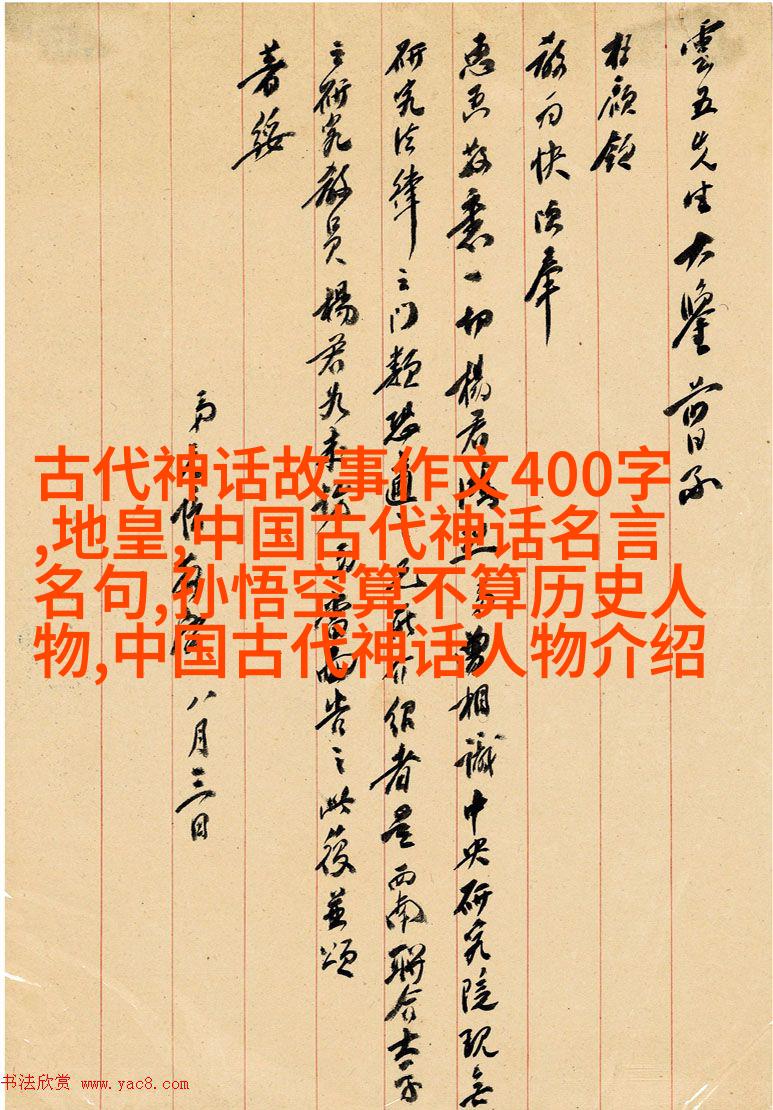 雲五先生大鑒前日承
枉顧領
教为快頃奉
惠書敬悉一切楊君相識中央研究院現無
研究法律之門類恐介紹者是西南聯合大
之研究教員楊君如來當面告之此覆並頌
著綏
弟八月三日
古代神话故事作文400字
,地皇,中国古代神话名言
名句,孙悟空算不算历史人
物,中国古代神话人物介绍
书法欣赏 www.yac8.com